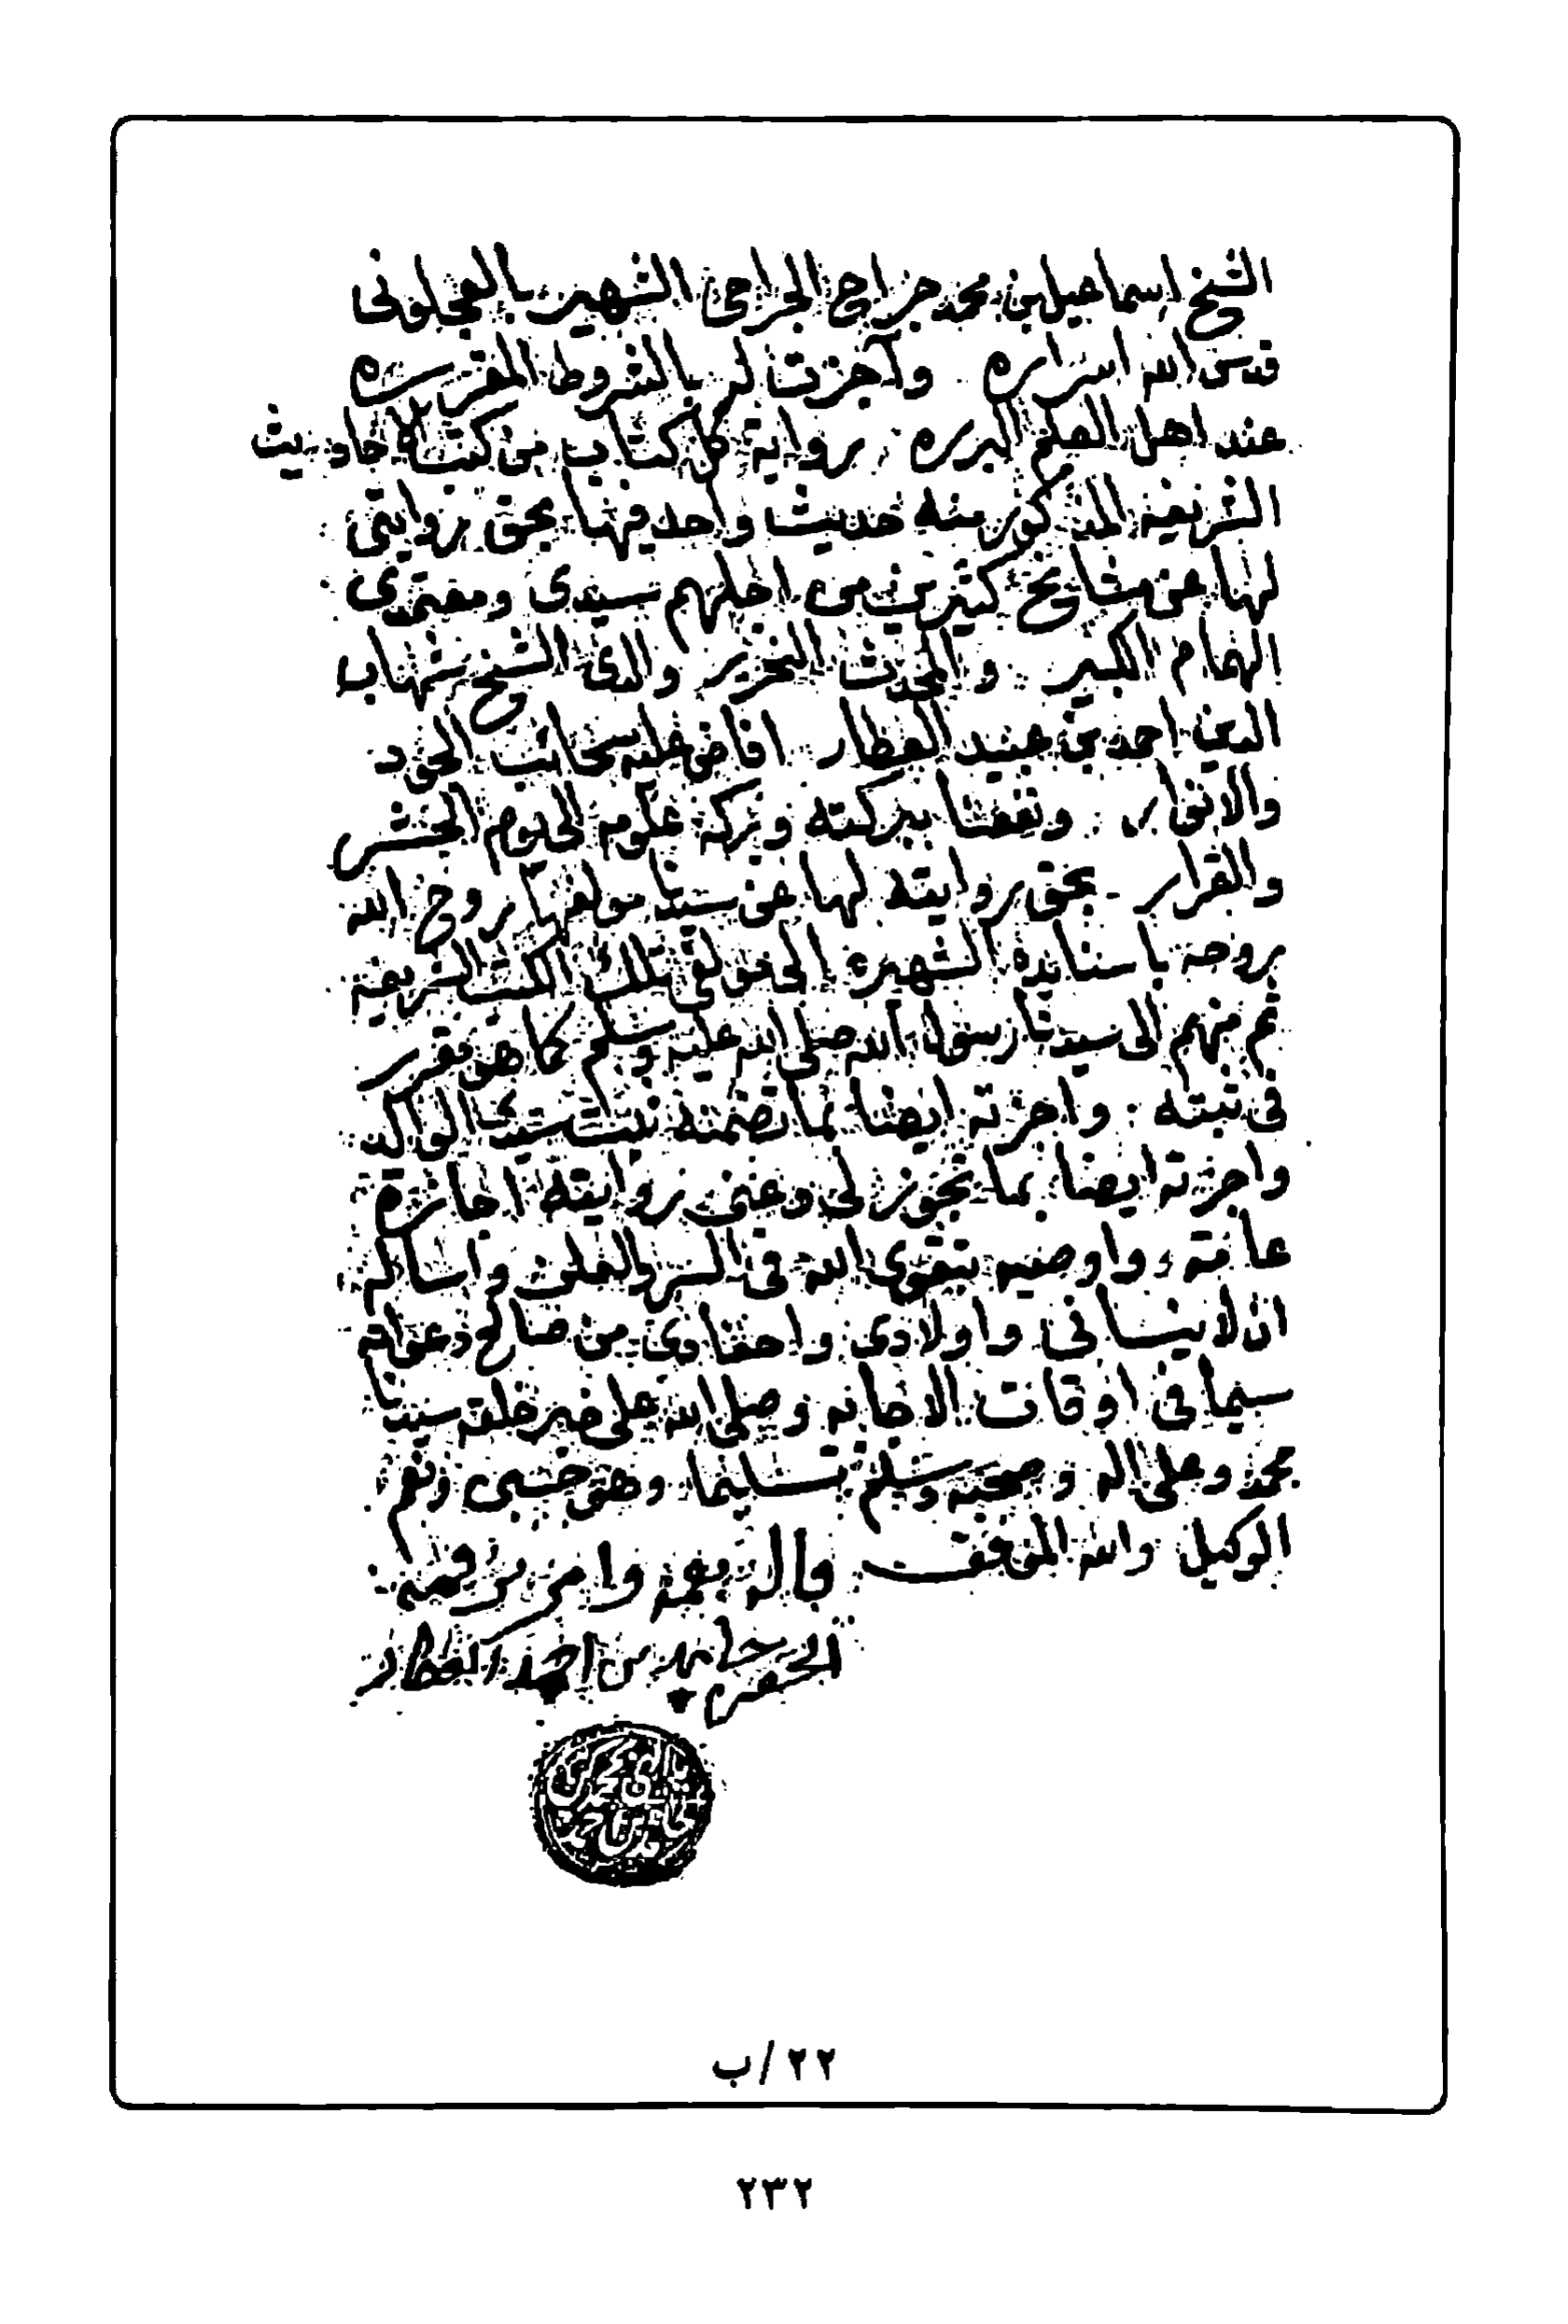 الشيخ اسماعيل بن محمد جراح الجراحي الشهير بالعجلوني
قدس الله اسراره وأجزت له بالشروط المقرره
عند اهل العلم البرره رواية كل كتاب من كتب الاحاديث
الشريفه المذكور منه حديث واحد فيها بحق روايتي
لها عن مشايخ كثيرين من اجلهم سيدي ومعتمدي
الهمام الكبير والمحدث النحرير والدي الشيخ شهاب
الدين احمد بن عبيد العطار افاض عليه سحائب الجود
والانوار ونفعنا ببركته وبركة علومه الى يوم الحشر
والقرار بحق روايته لها عن سيدنا مولفها روح الله
روحه باسنانيده الشهيره الى مولفي تلك الكتب الشريفه
ثم منهم الى سيدنا رسول الله صلى الله عليه وسلم كما هو مقرر
في ثبته واجزته ايضا بما تضمنه ثبت سيدي الوالد
واجزته ايضا بما تجوز لي وعني روايته اجازة
عامة واوصيه بتقوى الله في السر والعلن واساله
ان لا ينساني واولادي واحفادي من صالح دعواته
سيما في اوقات الاجابه وصلى الله على خير خلقه سيدنا
محمد وعلى اله وصحبه وسلم تسليما وهو حسبي ونعم
الوكيل والله الموفق قاله بفمه وامر برقمه
الحقير حامد بن احمد العطار
٢٢/ب
٢٣٢